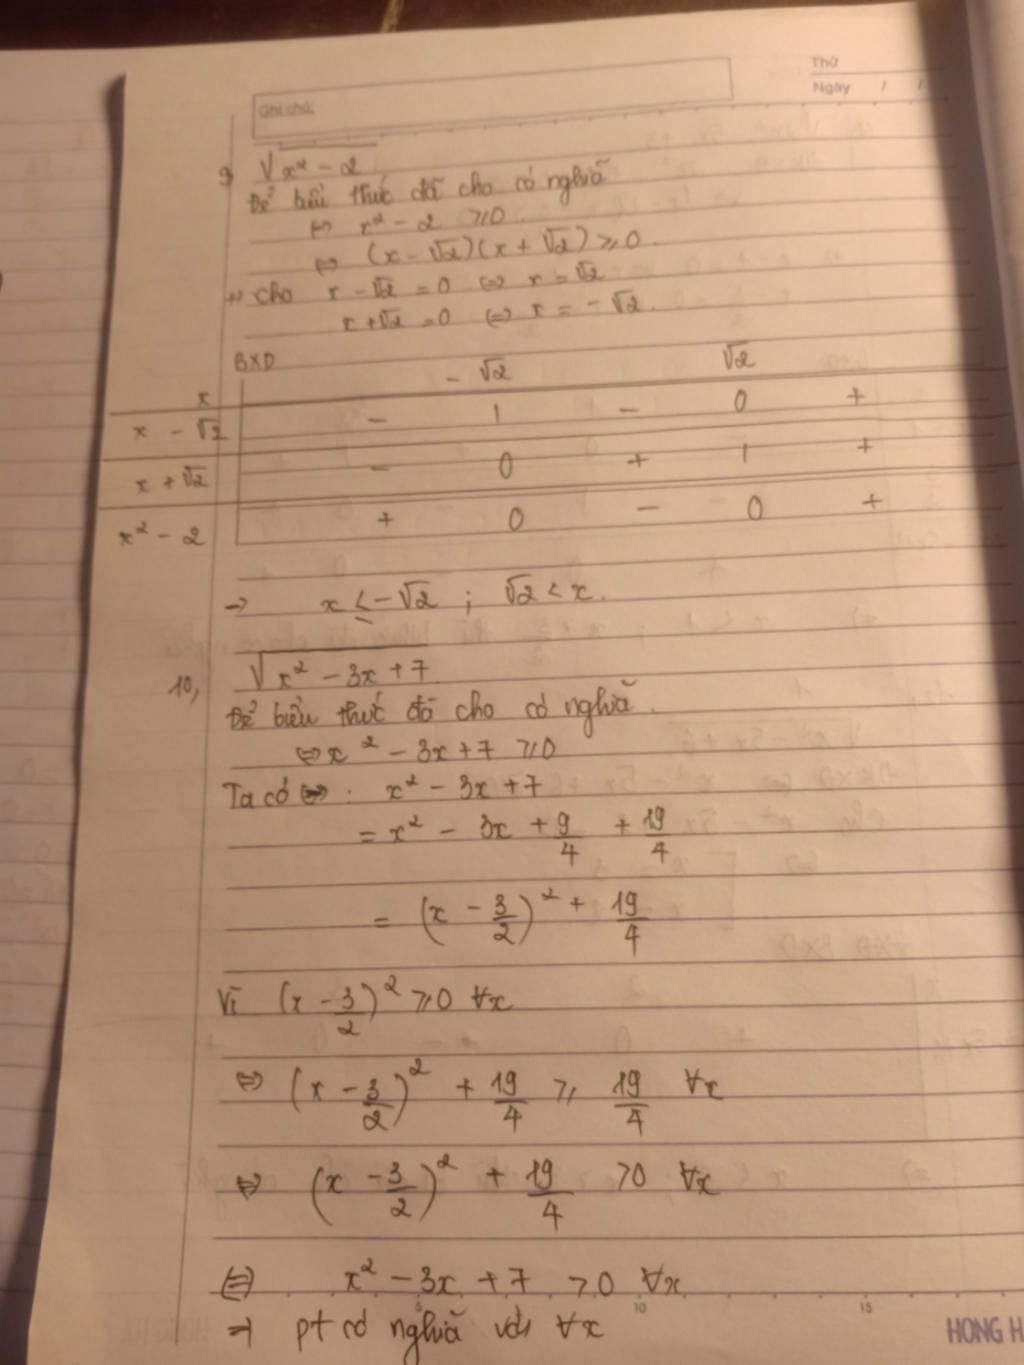 Thứ
Ghi chú:
Ngày / /
9, √x² - 2
Để biểu thức đã cho có nghĩa
⇔ x² - 2 ⩾0.
⇔ (x - √2)(x + √2) ⩾ 0.
+, cho x - √2 = 0 ⇔ x = √2
x + √2 = 0 ⇔ x = - √2.
BXD
x - √2 √2
x - √2 - | - 0 +
x + √2 - 0 + | +
x² - 2 + 0 - 0 +
→ x ≤ -√2 ; √2 < x.
10, √x² - 3x + 7
Để biểu thức đã cho có nghĩa.
⇔ x² - 3x + 7 ⩾0
Ta có : x² - 3x + 7
= x² - 3x + 9/4 + 19/4
= (x - 3/2)² + 19/4
Vì (x - 3/2)² ⩾0 ∀x
⇔ (x - 3/2)² + 19/4 ⩾ 19/4 ∀x
⇔ (x - 3/2)² + 19/4 >0 ∀x
⇔ x² - 3x + 7 >0 ∀x
5 10 15
⇒ pt có nghĩa với ∀x
HONG H